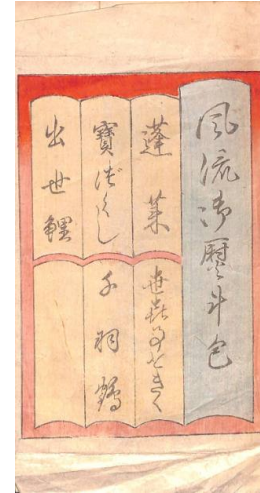 風流御暦斗包
蓬莱
世喜のときく
寳づくし
千羽鶴
出世鯉